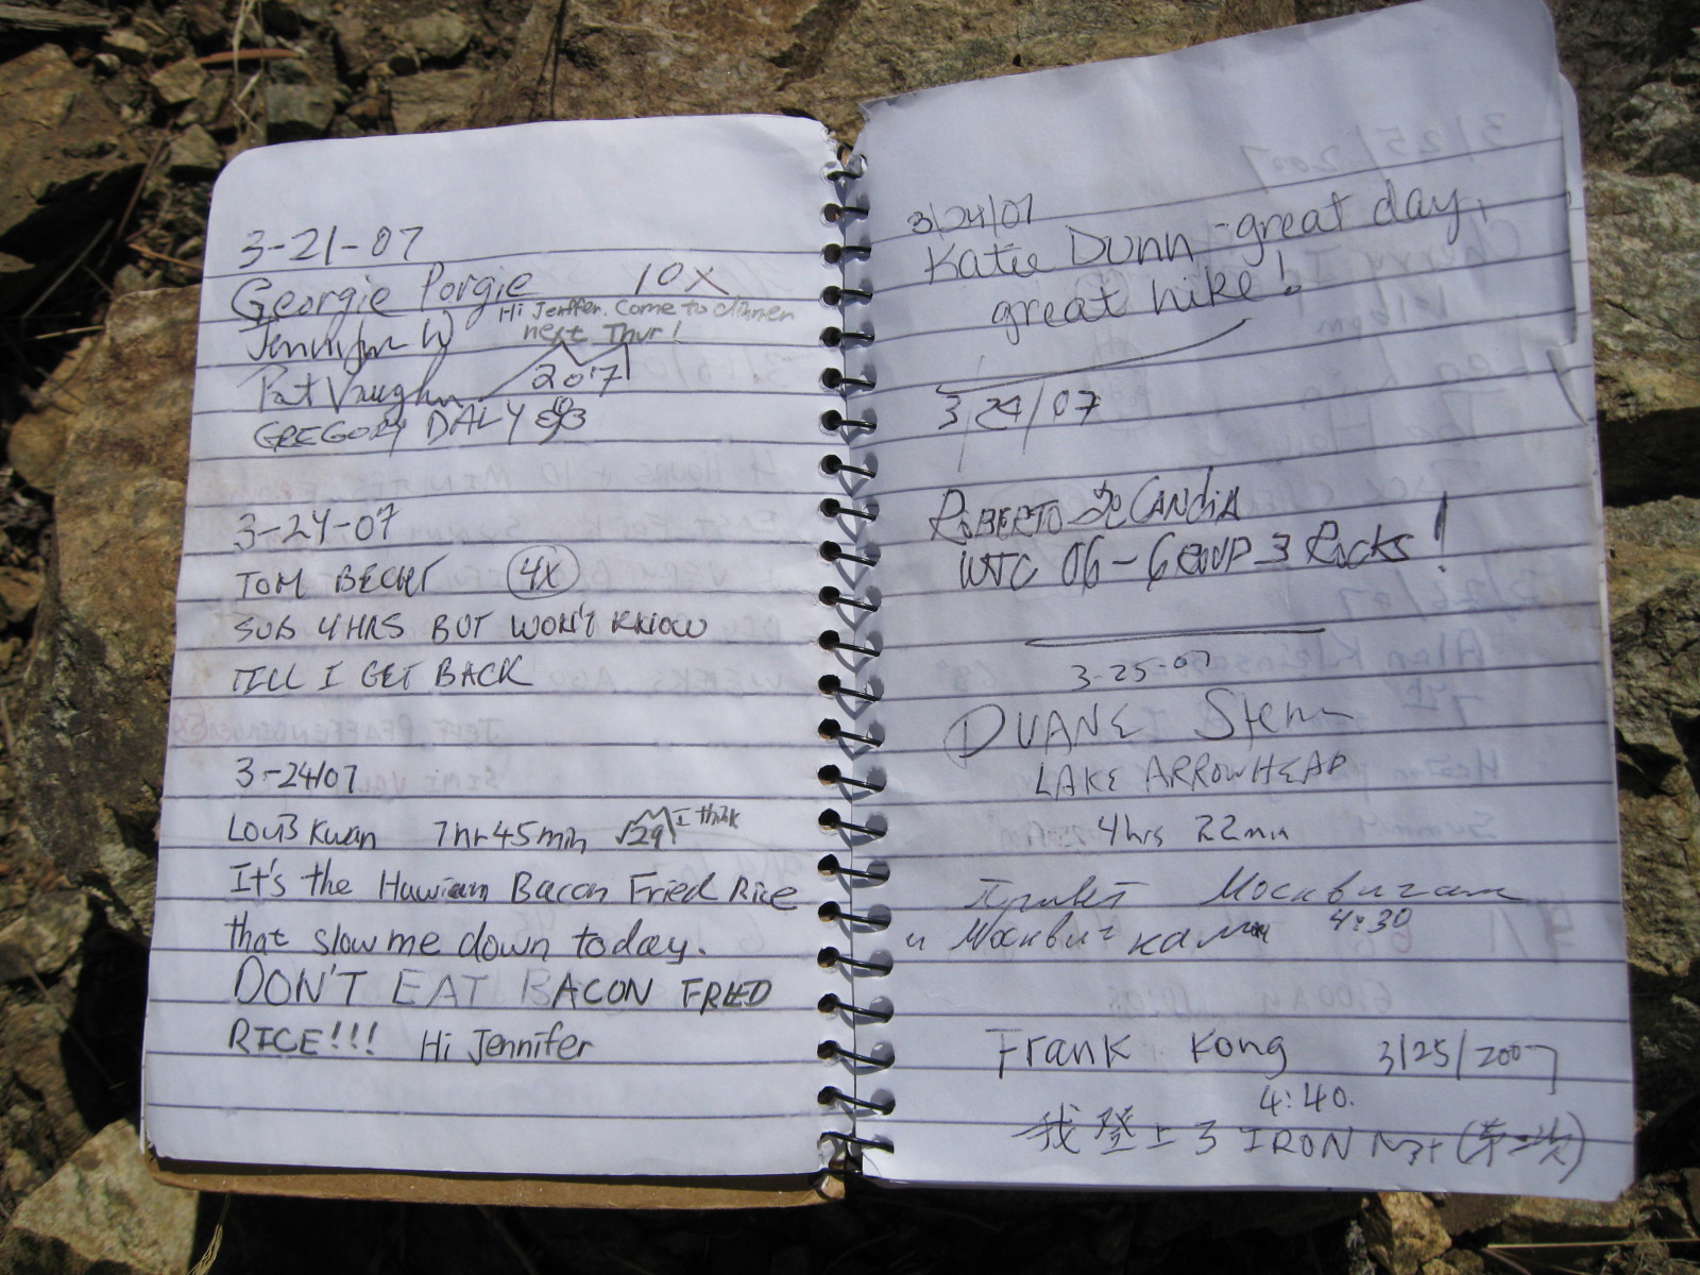 3-21-07
Georgie Porgie 10X
Hi Jenffer. Come to dinner
next Thur!
Jennifer W
Pat Vaughn 207
GREGORY DALY
3-24-07
TOM BECHT 4X
SUB 4 HRS BUT WON'T KNOW
TILL I GET BACK
3-24/07
Louis Kwan 7hr 45min √29 I think
It's the Hawiian Bacon Fried Rice
that slow me down today.
DON'T EAT BACON FRIED
RICE!!! Hi Jennifer
3/24/07
Katie Dunn - great day,
great hike!
3/24/07
ROBERTO DE CANDIA
WTC 06 - GROUP 3 Rocks!
3-25-07
DUANE
LAKE ARROWHEAD
4hrs 22min
Привет Москвичам
и Москвичкам 4:30
Frank Kong 3/25/2007
4:40.
我登上了 IRON Mt (第二次)